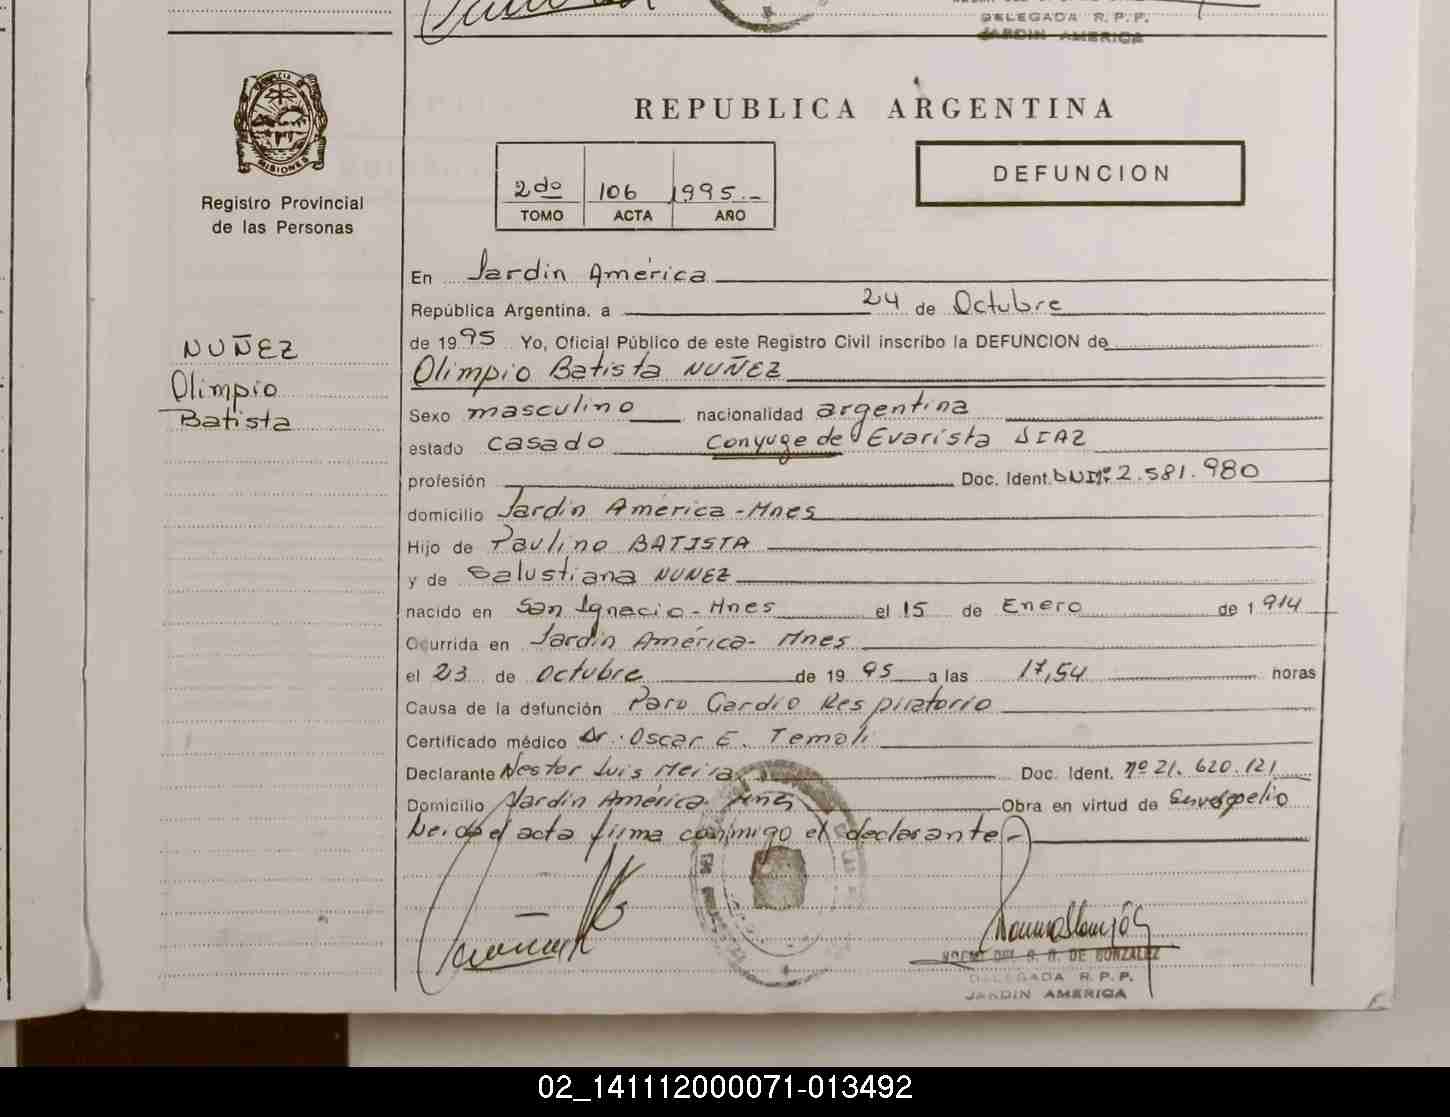 DELEGADA R.P.P.
JARDIN AMERICA
REPUBLICA ARGENTINA
DEFUNCION
2do 106 1995.-
TOMO ACTA AÑO
MISIONES
Registro Provincial
de las Personas
En Jardin América
República Argentina, a 24 de Octubre
de 1995 Yo, Oficial Público de este Registro Civil inscribo la DEFUNCION de
NUÑEZ
Olimpio
Batista
Olimpio Batista NUÑEZ
Sexo masculino nacionalidad argentina
estado casado Conyuge de Evarista DIAZ
profesión Doc. Ident. DNI Nº 2.581.980
domicilio Jardin América - Mnes
Hijo de Paulino BATISTA
y de Salustiana NUNEZ
nacido en San Ignacio - Mnes el 15 de Enero de 1914
Ocurrida en Jardin América - Mnes
el 23 de Octubre de 1995 a las 17,54 horas
Causa de la defunción Paro Cardio Respiratorio
Certificado médico Dr. Oscar E. Temoli
Declarante Nestor Luis Meira Doc. Ident. nº 21.620.121
Domicilio Jardin América Mnes Obra en virtud de
Leida el acta firma conmigo el declarante -
DE GONZALEZ
DELEGADA R.P.P.
JARDIN AMERICA
02_141112000071-013492